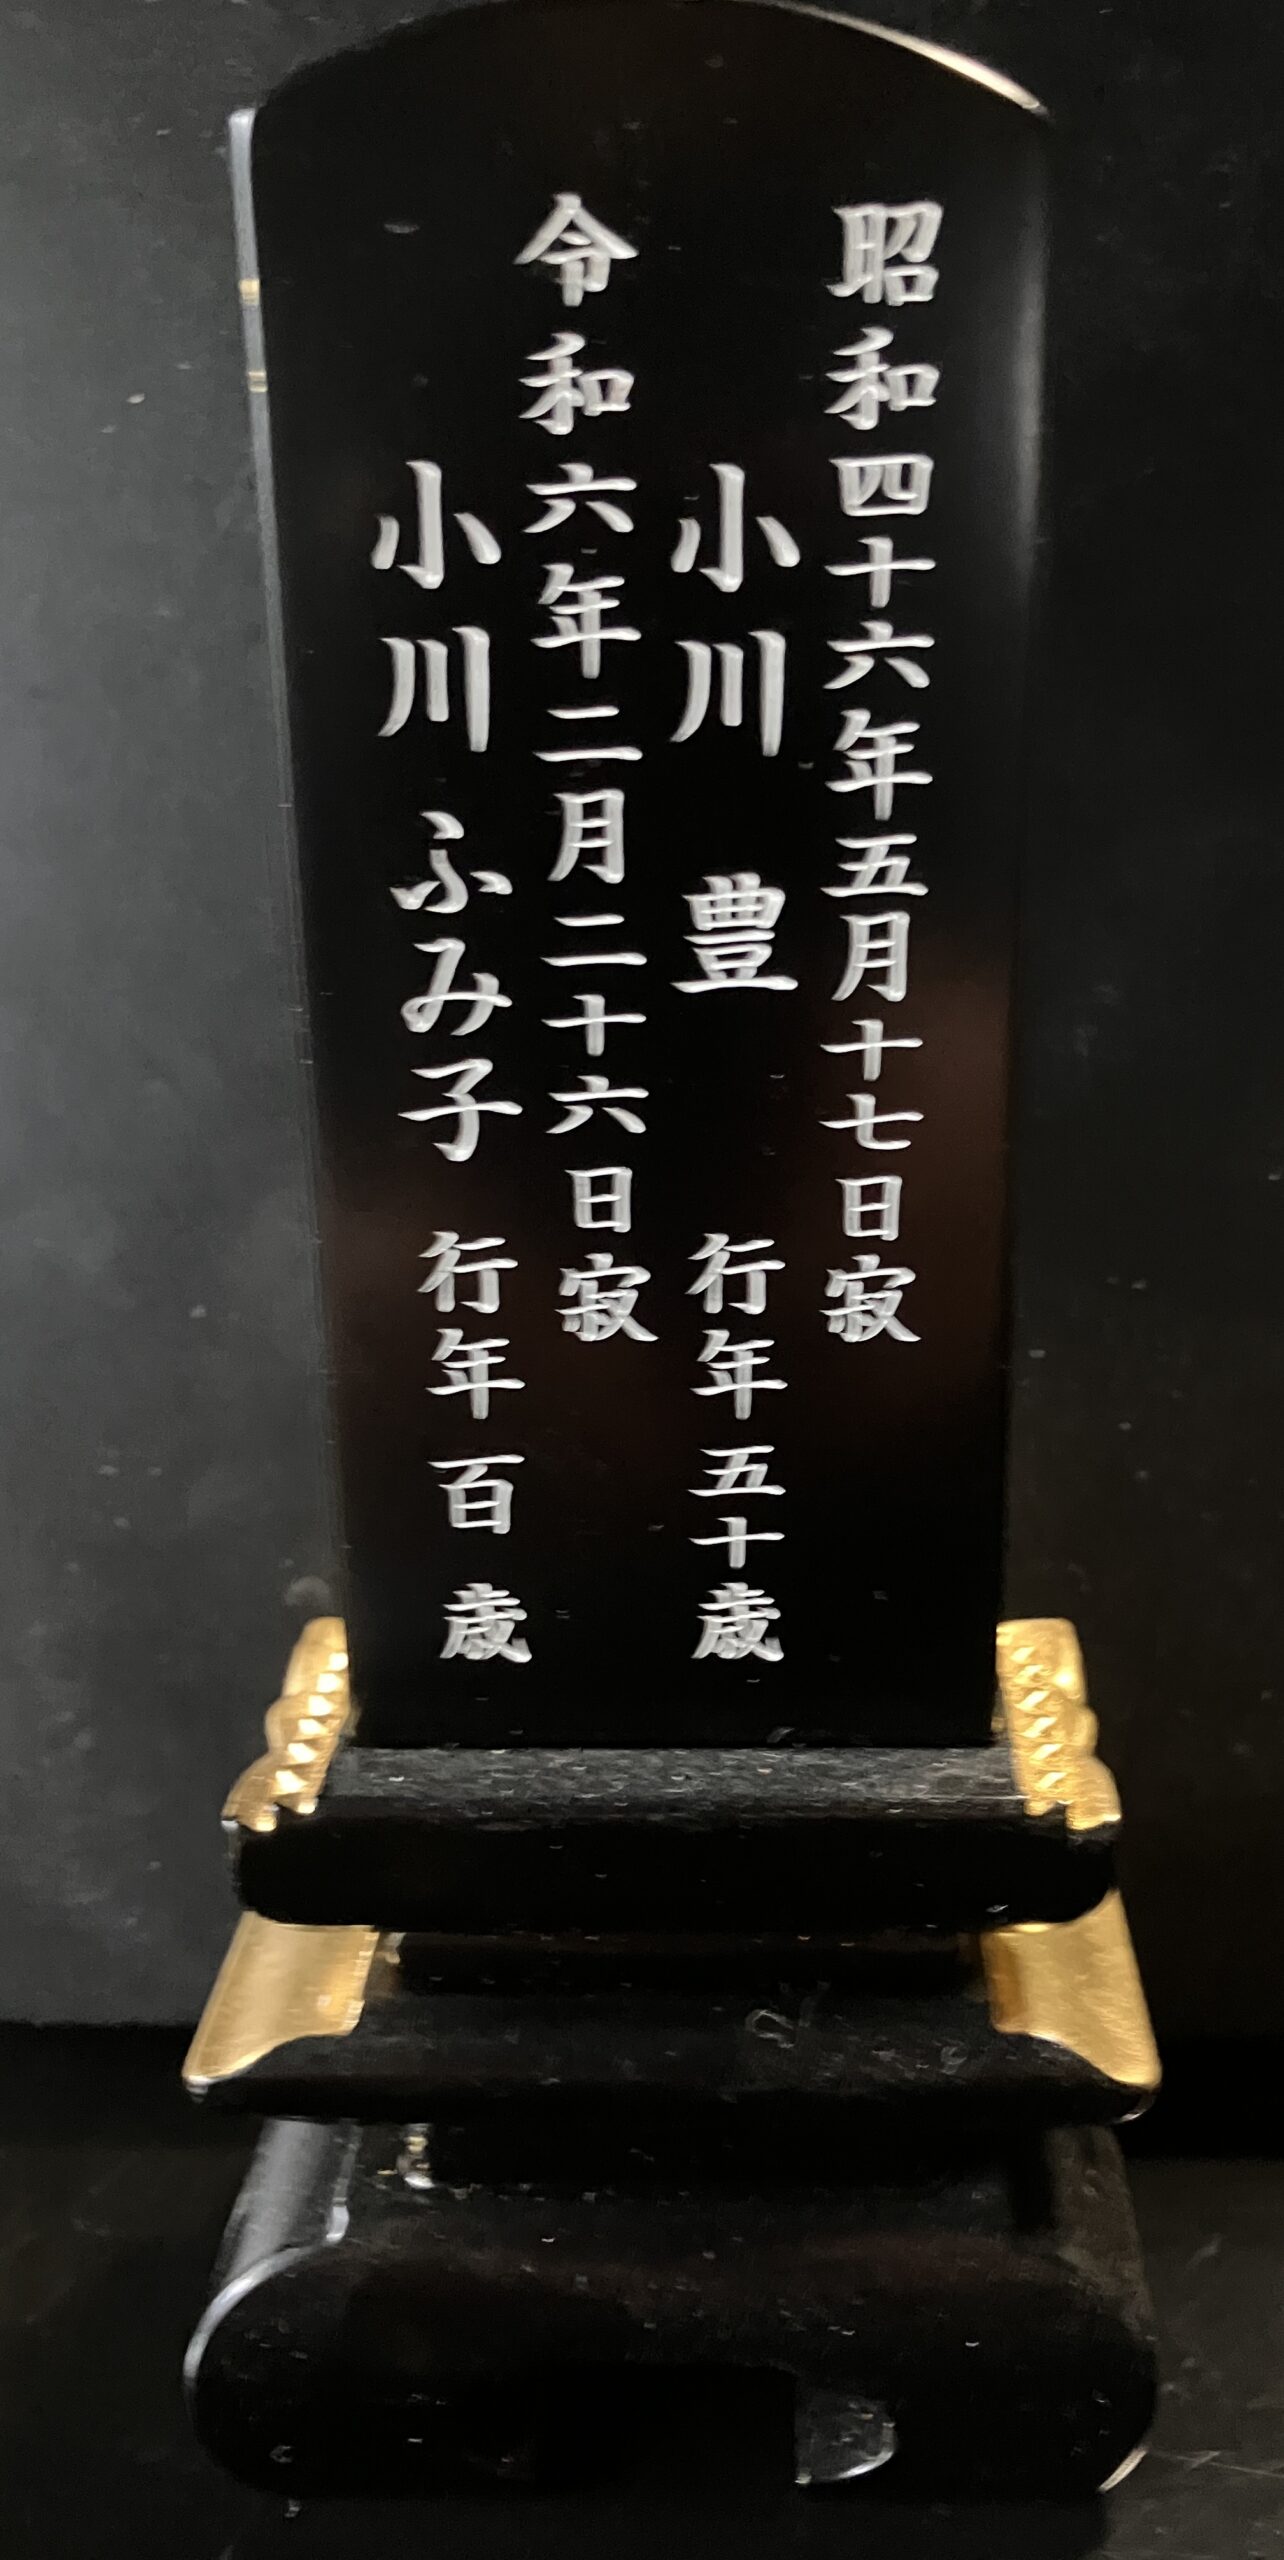 昭和四十六年五月十七日寂
小川 豊 行年五十歳
令和六年二月二十六日寂
小川 ふみ子 行年百歳